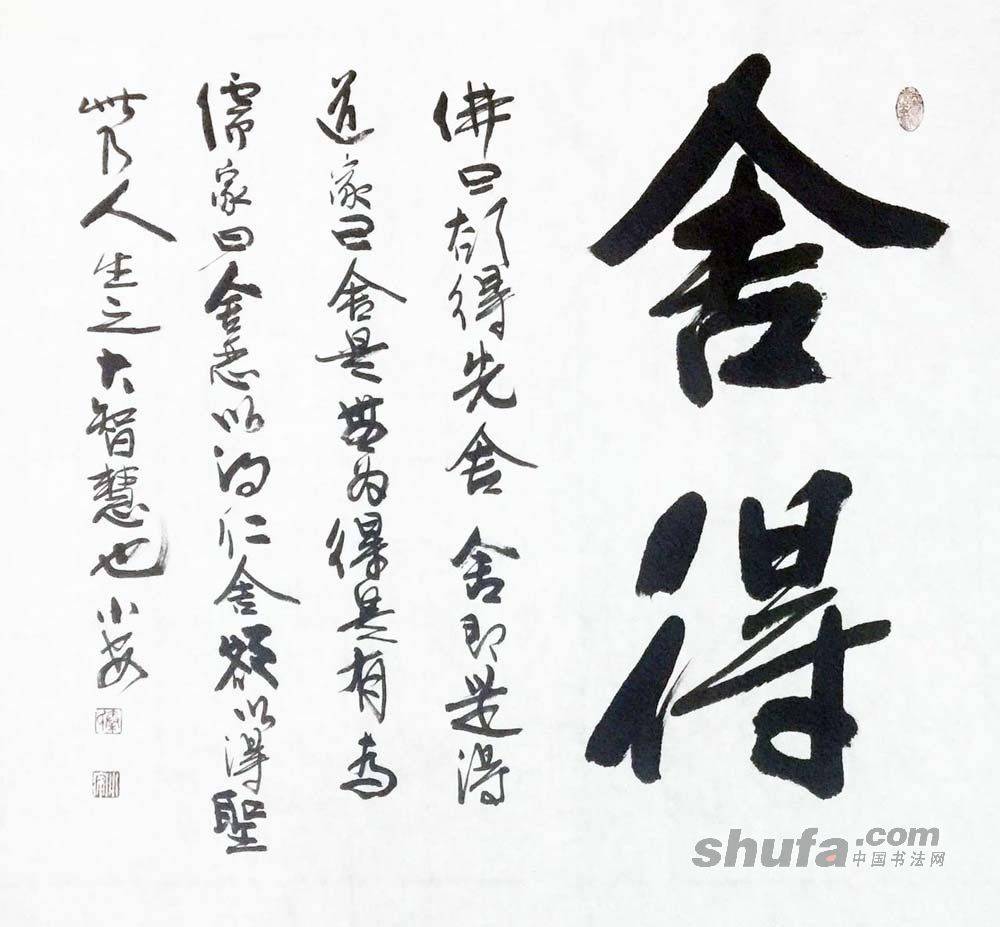 舍得
佛曰欲得先舍舍即是得
道家曰舍是無为得是有為
儒家曰舍恶以得仁舍欲以得聖
此乃人生之大智慧也小安
shufa.com
中国书法网